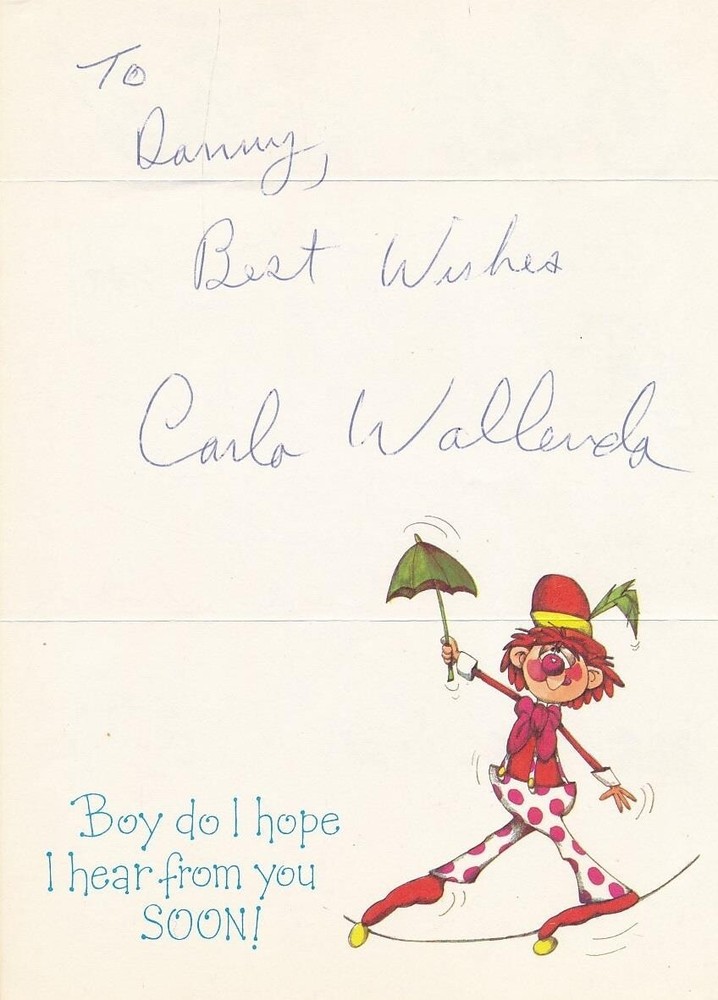 To
Danny,
Best Wishes
Carla Wallenda
Boy do I hope
I hear from you
SOON!